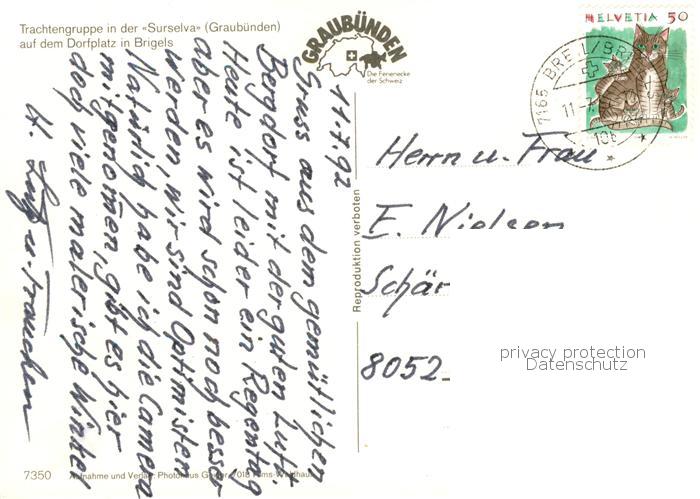 Trachtengruppe in der «Surselva» (Graubünden)
auf dem Dorfplatz in Brigels
GRAUBÜNDEN
Die Ferienecke
der Schweiz
HELVETIA 50
7165 BREIL/BR
11-7
11.7.92
Gruss aus dem gemütlichen
Bergdorf mit der guten Luft.
Heute ist leider ein Regentag
aber es wird schon noch besser
werden, wir sind Optimisten
Natürlich habe ich die Camera
mitgenomen, gibt es hier
doch viele malerische Winkel
H. u. Frauchen
Reproduktion verboten
Herrn u. Frau
E. Nielsen
Schär
8052
privacy protection
Datenschutz
7350 Aufnahme und Verlag: Photohaus Geiger, 7018 Flims-Waldhaus